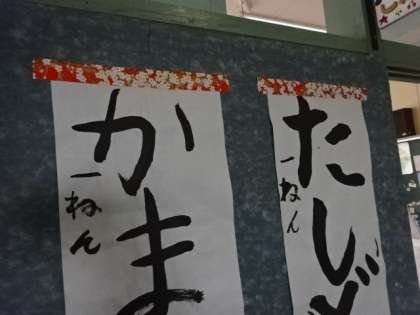 たじ
一ねん
かま
一ねん